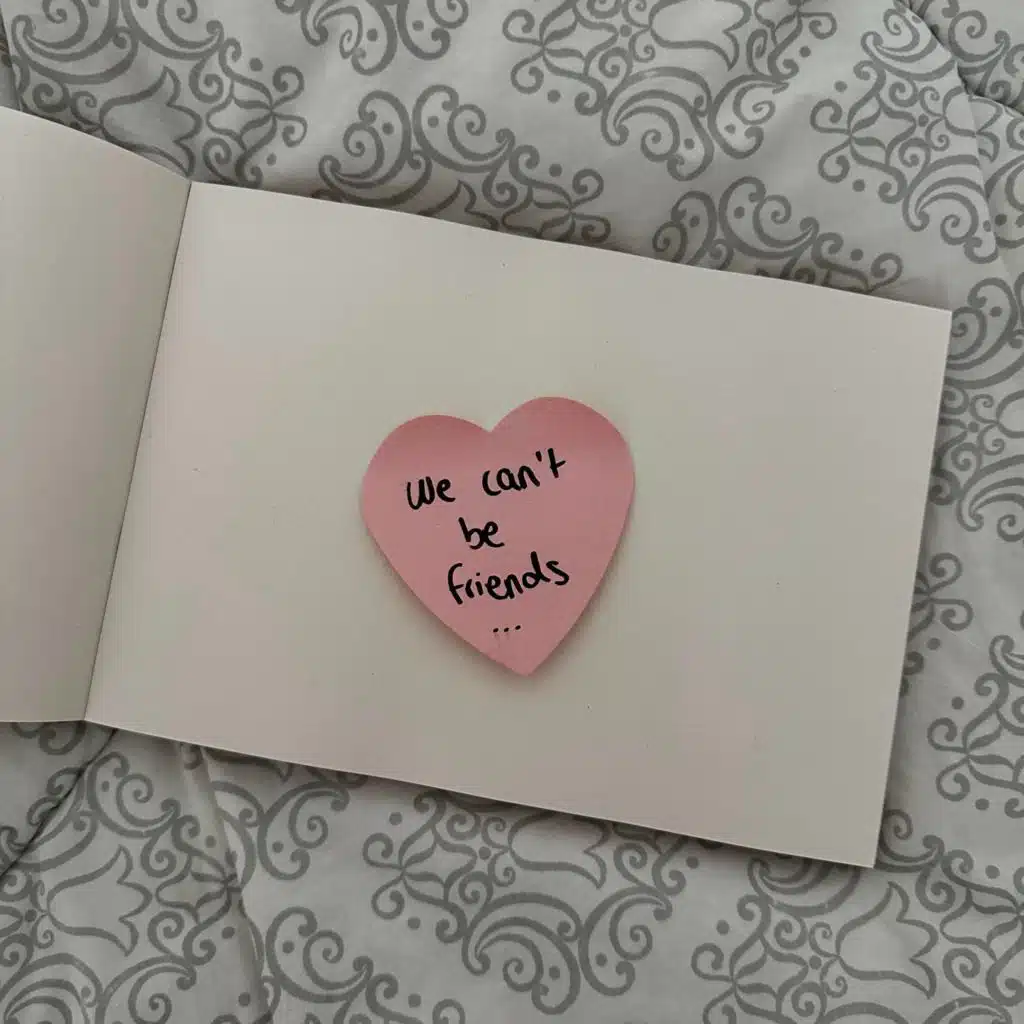 We can't
be
friends
...